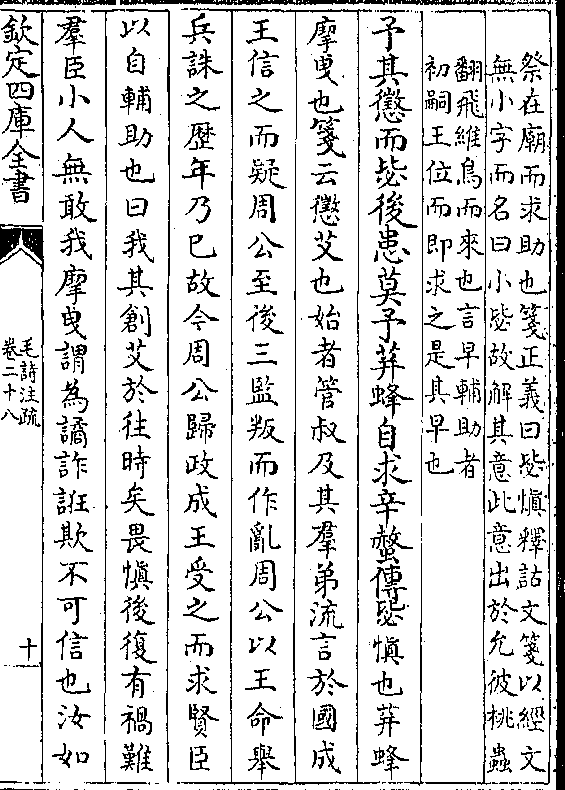 祭在廟而求助也箋正義曰毖愼釋詁文箋以經文
無小字而名曰小毖故解其意此意出於允彼桃蟲
翻飛維鳥而來也言早輔助者
初嗣王位而即求之是其早也
予其懲而毖後患莫予荓蜂自求辛螫傳毖愼也荓蜂
摩曳也箋云懲艾也始者管叔及其羣弟流言於國成
王信之而疑周公至後三監叛而作亂周公以王命舉
兵誅之歴年乃已故今周公歸政成王受之而求賢臣
以自輔助也曰我其創艾於往時矣畏愼後復有禍難
羣臣小人無敢我摩曳謂為譎詐誑欺不可信也汝如
欽定四庫全書
毛詩注疏
卷二十八
十